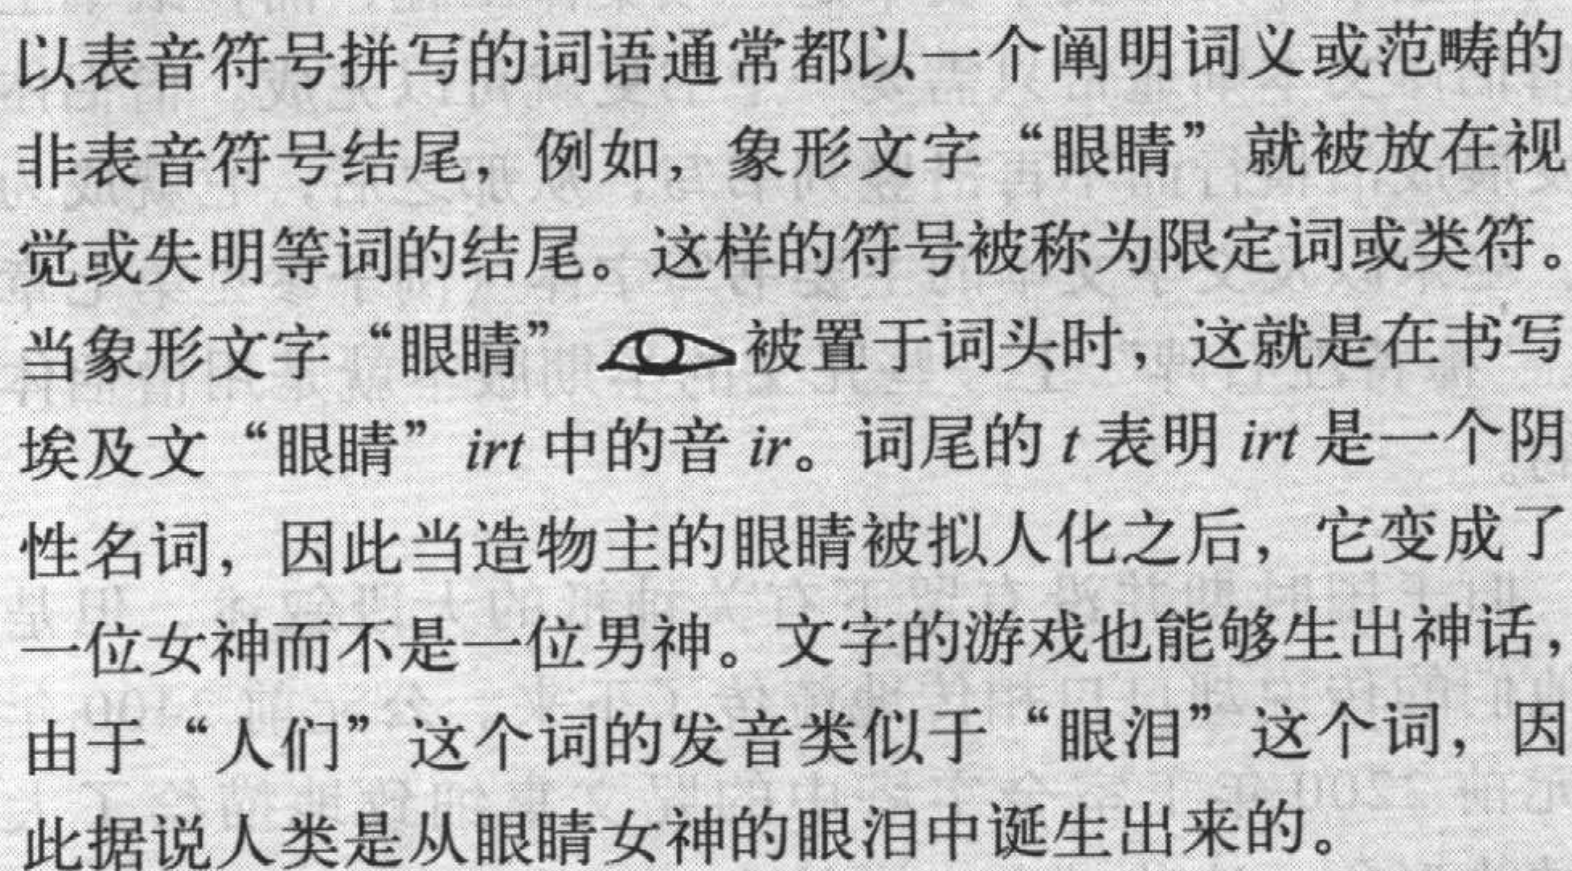 以表音符号拼写的词语通常都以一个阐明词义或范畴的
非表音符号结尾，例如，象形文字“眼睛”就被放在视
觉或失明等词的结尾。这样的符号被称为限定词或类符。
当象形文字“眼睛”被置于词头时，这就是在书写
埃及文“眼睛”irt 中的音 ir。词尾的 t 表明 irt 是一个阴
性名词，因此当造物主的眼睛被拟人化之后，它变成了
一位女神而不是一位男神。文字的游戏也能够生出神话，
由于“人们”这个词的发音类似于“眼泪”这个词，因
此据说人类是从眼睛女神的眼泪中诞生出来的。